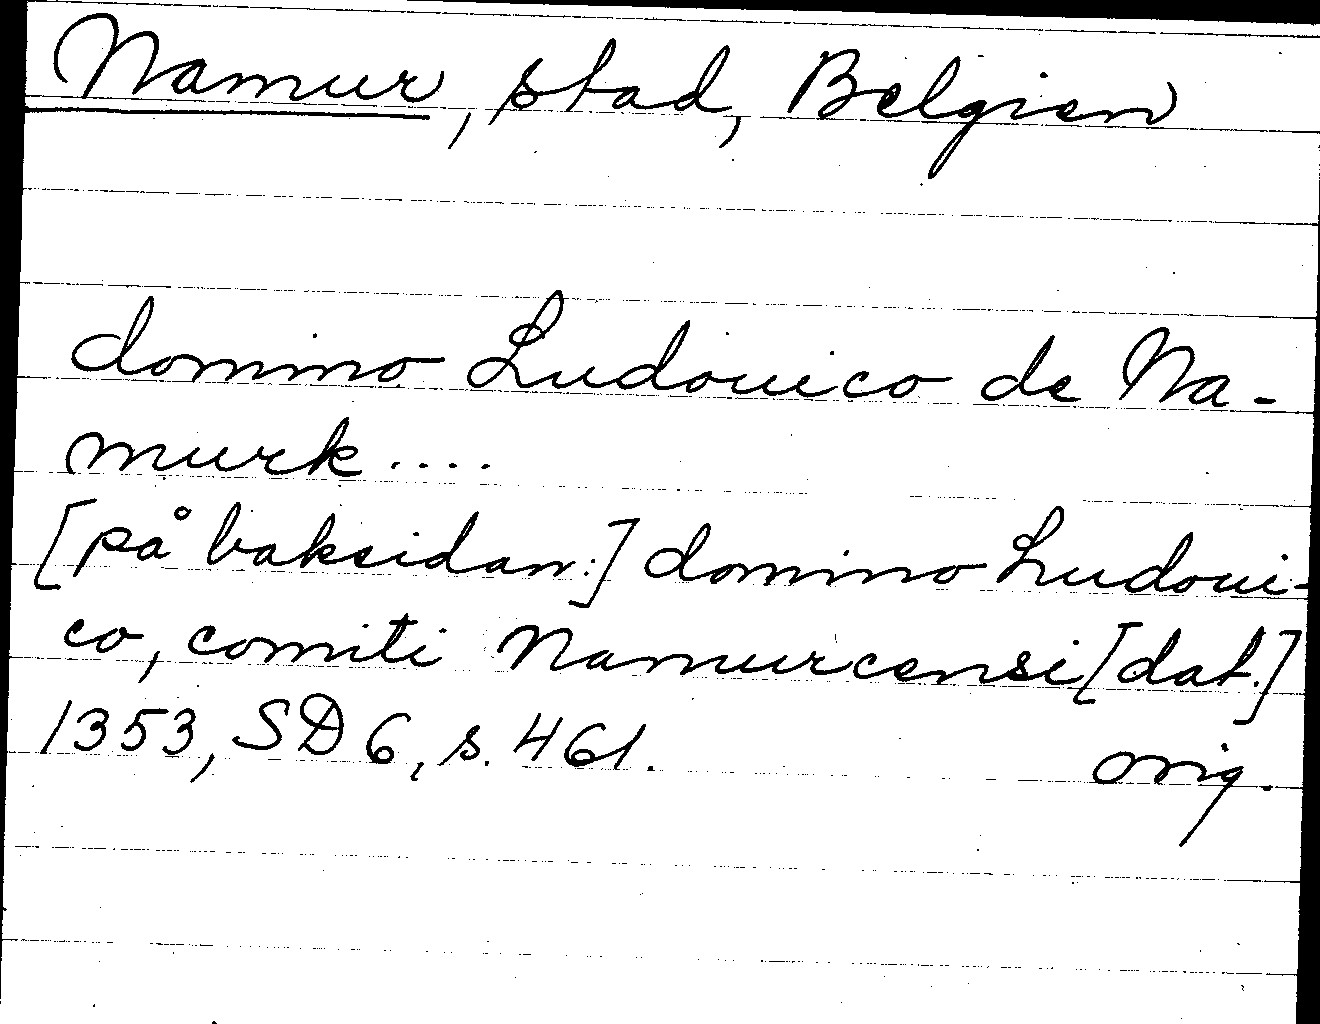 Namur, stad, Belgien
domino Ludouico de Na-
murk....
[på baksidan:] domino Ludoui-
co, comiti Namurcensi [dat.]
1353, SD 6, s. 461. orig.